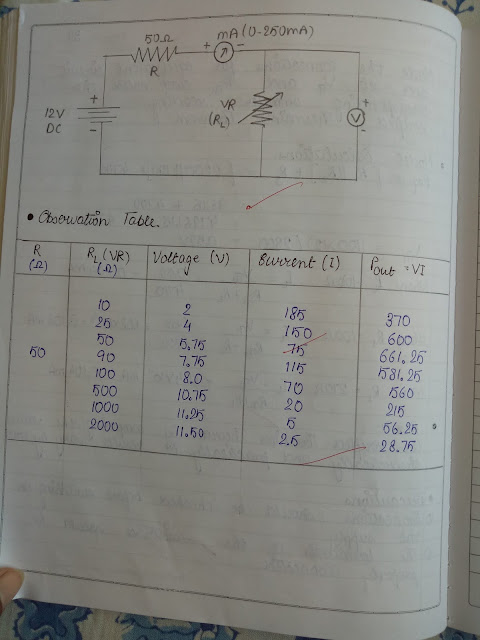 50Ω
R
+ mA (0-250mA) -
12V
DC
+
-
VR
(RL)
+
V
-
• Observation Table.
R (Ω) RL (VR) (Ω) Voltage (V) Current (I) Pout = VI
10 2 185 370
25 4 150 600
50 5.75 75 661.25
50 90 7.75 115 581.25
100 8.0 70 560
500 10.75 20 215
1000 11.25 5 56.25
2000 11.50 2.5 28.75